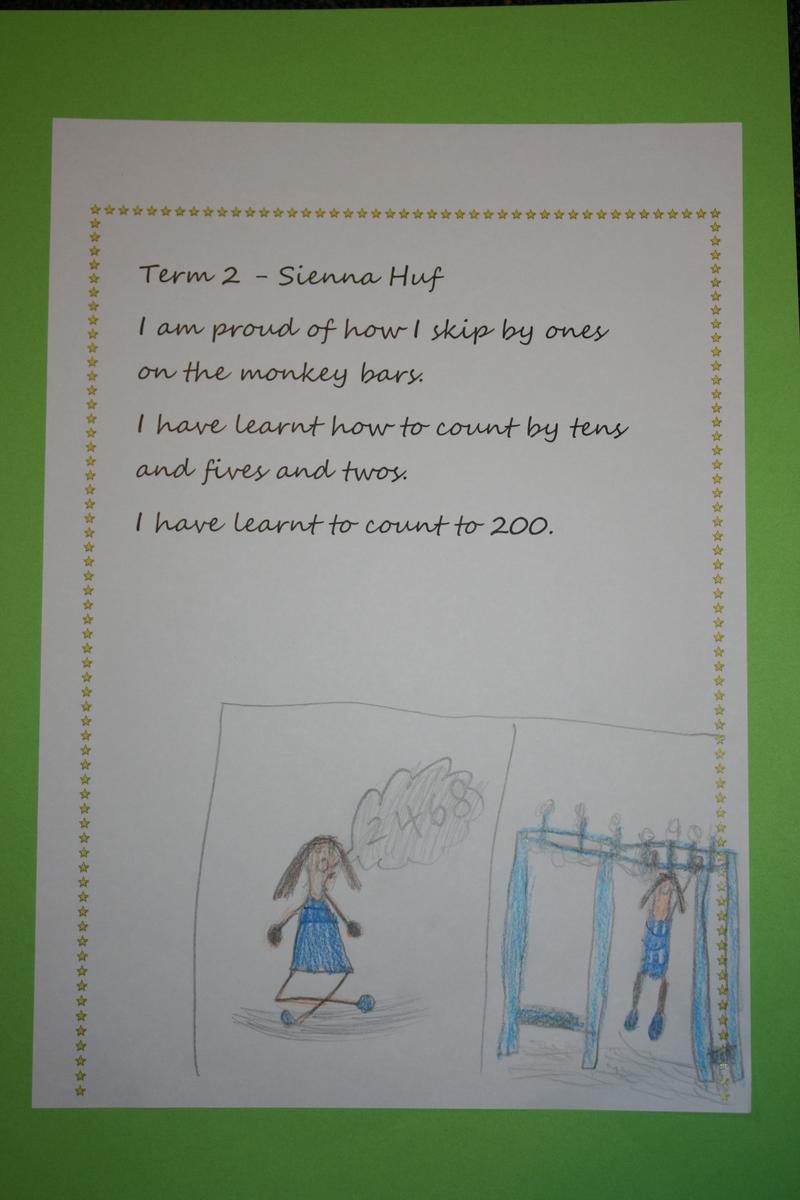 Term 2 - Sienna Huf
I am proud of how I skip by ones
on the monkey bars.
I have learnt how to count by tens
and fives and twos.
I have learnt to count to 200.
2468